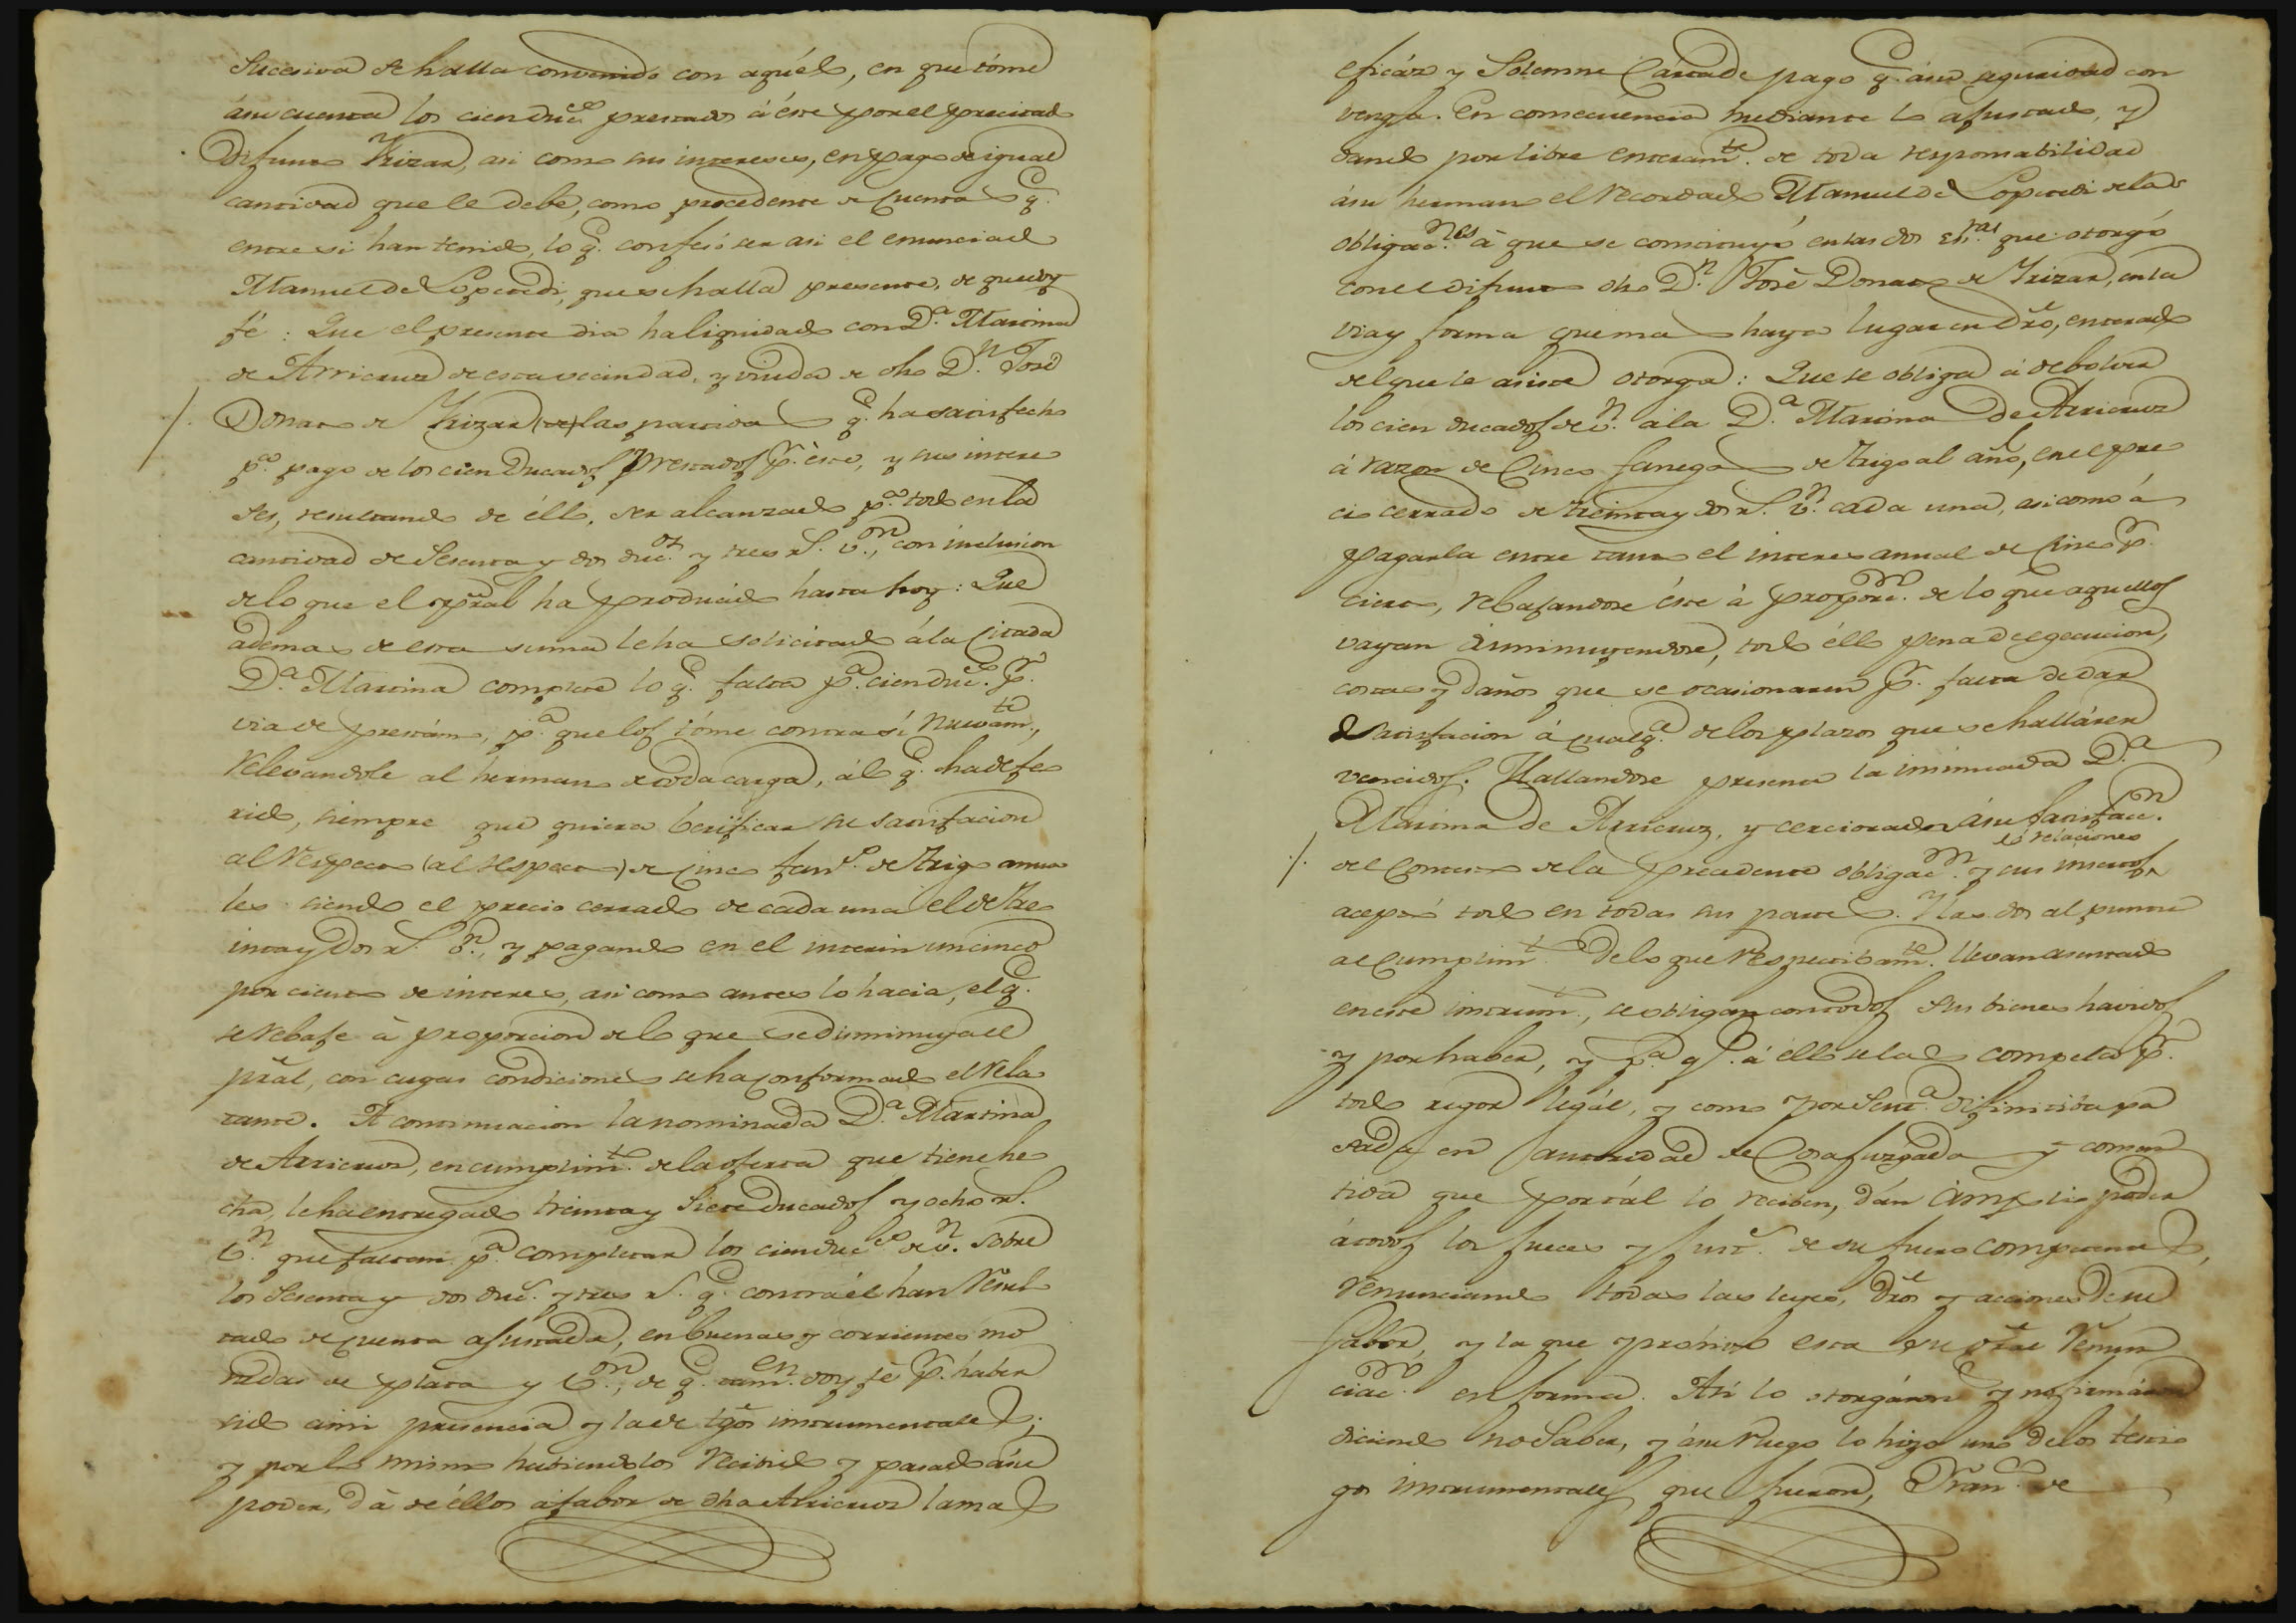 sucesiva se halla convenido con aquél, en que tóme
ásu cuenta los cien duc.os prestados á éste por el precitado
difunto Yrizar, asi como sus intereses, en pago de igual
cantidad que le debe, como procedente de Cuentas q.e
entre si han tenido, lo q.e confesó ser asi el enunciado
Manuel de Lopetedi, que se halla presente, de que doy
fé: Que el presente dia ha liquidado con D.a Maxima
de Arricruz de esta vecindad, y viuda de dho D.n José
Donato de Yrizar (de) las partidas q.e ha satisfecho
p.a pago de los cien Ducados prestados p.r éste, y sus intere
ses, resultando de éllo, ser alcanzado p.a todo en la
cantidad de Sesenta y dos duc.os y tres r.s v.on, con inclusion
de lo que el pral ha producido hasta hoy: Que
ademas de esta suma le ha solicitado á la Citada
D.a Maxima complete lo q.e falta p.a cien duc.s p.r
via de prestámo, p.a que los tóme contra sí nuevam.te,
relevandole al hermano de toda carga, á lo q.e ha defe
rido, siempre que quiera berificar su satisfacion
al respecto (al respecto) de Cinco fan.s de Trigo anua
les siendo el precio cerrado de cada una el de tre
inta y dos r.s v.n, y pagando en el interin un cinco
por ciento de interes, asi como antes lo hacia, el q.e
se rebaje á proporcion de lo que se disminuya el
prãl, con cuyas condiciones se ha conformado el rela
tante. A continuacion la nominada D.a Maxima
de Arricruz, en cumplim.to de la oferta que tiene he
cha, le ha entregado treinta y Siete Ducados y ocho r.s
v.n que faltan p.a completar los cien duc.os de v.n sobre
los Sesenta y dos duc.s y tres r.s q.e contra él han resul
tado de cuenta ajustada, en buenas y corrientes mo
nedas de plata y v.on, de q.e tam.en doy fé p.r haber
sido ámi presencia y la de tgos instrumentales;
y por lo mismo habiendolos recibido y pasado ásu
poder, dá de éllos a fabor de dha Arricruz la mas
eficáz y Solemne Carta de pago q.e ásu seguridad con
venga. En consecuencia mediante lo ajustado, y
dando por libre enteram.te de toda responsabilidad
ásu hermano el recordado Manuel de Lopetedi de las
obligac.nes á que se constituyó en las dos es.ras que otorgó
con el difunto dho D.n José Donato de Yrizar, en la
via y forma que mas haya lugar en dro, enterado
del que le asiste otorga: Que se obliga á debolver
los cien ducados de v.n á la D.a Maxima de Arricruz
á razon de Cinco fanegas de Trigo al año, en el pre
cio cerrado de treinta y dos r.s v.n cada una, asi como á
pagarla entre tanto el interes annual de Cinco p.r
ciento, rebajandose éste á proporc.on de lo que aquellos
vayan disminuyendose, todo éllo pena de egecucion,
costas y daños que se ocasionaren p.r falta de dar
Satisfacion á qualq.a de los plazos que se halláren
vencidos. Hallandose presente la insinuada D.a
Maxima de Arricruz, y cerciorada á su satisfac.on
las relaciones
del contesto de la precedente obligac.on y sus insertos,
aceptó todo en todas sus partes. Y las dos al puntual
cumplim.to de lo que respectibam.te llevan asentado
en este instrum.to, se obligan con todos sus bienes havidos
y por haber, y p.a q.e á éllo se las compela p.r
todo rigor legál, y como por Sent.a difinitiba pa
sada en autoridad de Cosa juzgada y consen
tida que por tál lo reciben, dán ámplio poder
á todos los jueces y just.s de su fuero competentes,
renunciando todas las leyes, dros y acciones de su
fabor, y la que prohive esta su gral renun
ciac.on en forma. Asi lo otorgáron y no firmáron
diciendo no Saber, y ásu ruego lo hizo uno de los testi
gos instrumentales que fueron, Fran.co de